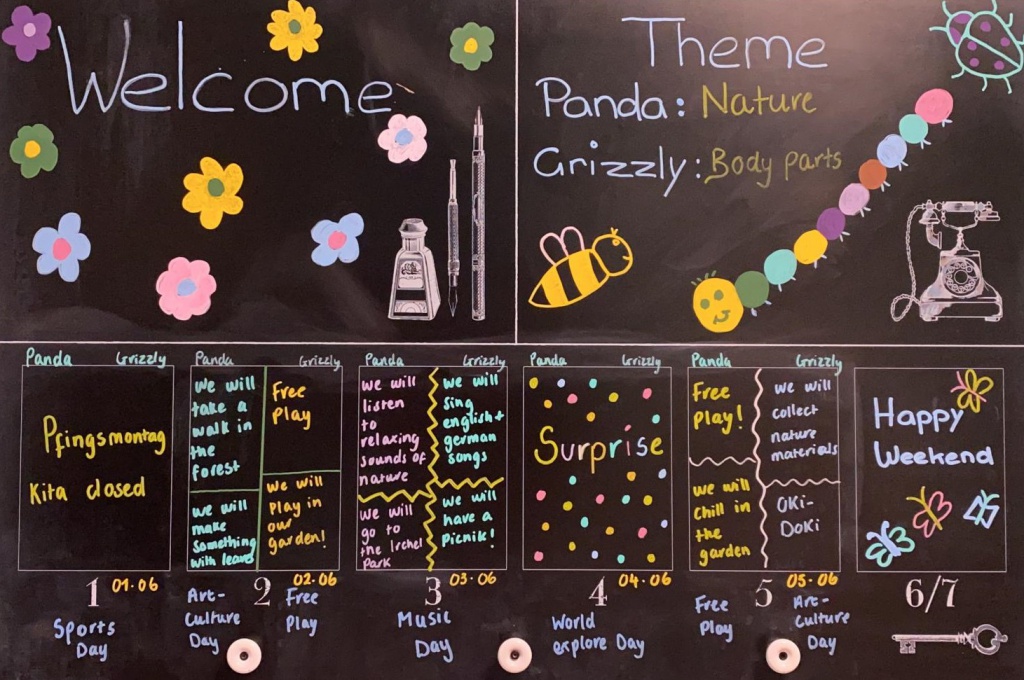 Welcome
Theme
Panda: Nature
Grizzly: Body parts
Panda Grizzly
Pfingsmontag
Kita closed
1 01.06
Sports
Day
Panda Grizzly
we will
take a
walk in
the
forest
we will
make
something
with leaves
Free
Play
we will
play in
our
garden!
2 02.06
Art-
Culture
Day
Free
Play
Panda Grizzly
we will
listen
to
relaxing
sounds of
nature
we will
go to
the Irchel
Park
we will
sing
english+
german
songs
we will
have a
picnik!
3 03.06
Music
Day
Panda Grizzly
Surprise
4 04.06
World
explore Day
Panda Grizzly
Free
Play!
we will
chill in
the
garden
we will
collect
nature
materials
OKi-
DoKi
5 05.06
Free
Play
Art-
Culture
Day
Happy
Weekend
6/7